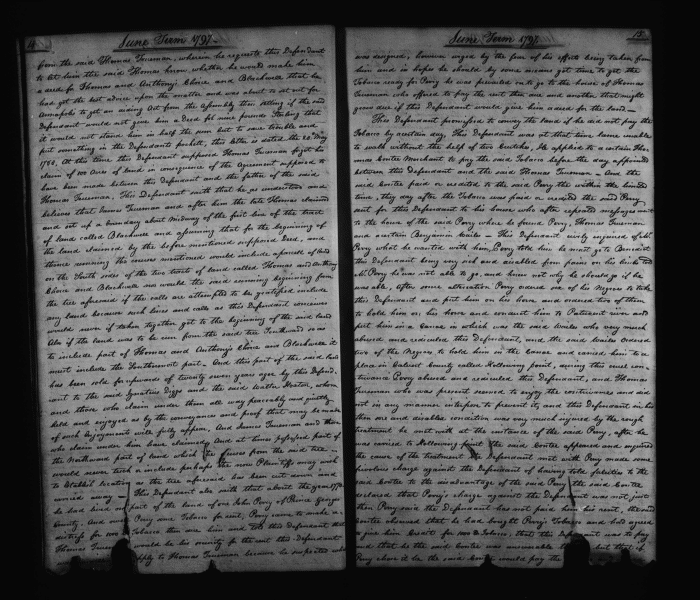 June Term 1797.
from the said Thomas Trueman, wherein he requests this Defendant
to let him the said Thomas know whether he would make him
a deed for Thomas and Anthony's Choice and Blackwell that he
had got the best advice upon the matter and was about to set out for
Annapolis to get an act from the Assembly then telling if the said
Defendant would not give him a Deed for nine pounds Sterling that
it would not stand him in half the sum but to save trouble and
put something in the Defendants pocket, this letter is dated the day
1768, At the time this Defendant supposed Thomas Trueman forgot his
claim of 100 Acres of land in consequence of the Agreement supposed to
have been made between this defendant and the father of the said
Thomas Trueman. This Defendant saith that he is understood and
believes that James Trueman and after him the late Thomas claimed
and set up a boundary about Midway of the first line of the tract
of land called Blackwell and affirming that for the beginning of
the land claimed by the before mentioned supposed Deed, and
thence running the courses mentioned would include a parcel of land
on the South sides of the two tracts of land called Thomas and Anthony
Choice and Blackwell nor would the said running beginning from
the tree aforesaid if the calls are attempted to be gratified include
any land because such lines and calls as this Defendant conceives
would never if taken together get to the beginning of the said land
Also if the land was to be run from the said tree Southward so as
to include part of Thomas and Anthony's Choice and Blackwell it
must include the Southernmost part. And this part of the said land
has been sold for upwards of twenty seven years ago by this Defend
ant to the said Ignatius Diggs and the said Leatta Heater, whom
and those who claim under them all way peaceably and quietly
held and enjoyed as by the conveyance and proof that may be made
of such Enjoyments will fully appear, And James Trueman and them
who claim under him have claimed and at times possessed part of
the Northward part of land which courses from the said tree
would never touch or include perhaps the now Plaintiffs may wish
to Establish location as the tree aforesaid has been cut down and
carried away. This Defendant also saith that about the year 1770
he had lived on part of the land of one John Perry of Prince Georges
County And owed Perry some Tobacco for rent, Perry came to make a
distress for 1000 Tobacco then due him and told this Defendant that
Thomas Trueman would be his security for the rent this Defendant
apply to Thomas Trueman because he suspected what
June Term 1797
15
was designed, however urged by the fear of his effects being taken from
him and in hopes he should by some means get time to get the
Tobacco ready for Perry he was prevailed on to go to the house of Thomas
Trueman who offered to pay the rent then due and another that might
grow due if this Defendant would give him a deed for the land.
This Defendant promised to convey the land if he did not pay the
Tobacco by a certain day, This Defendant was at that time lame unable
to walk without the help of two Crutches, He applied to a certain Tho
mas Contee Merchant to pay the said Tobacco before the day appointed
between this Defendant and the said Thomas Trueman. And the
said Contee paid or credited to the said Perry the within the limited
time, they day after the Tobacco was paid or credited the said Perry
sent for this Defendant to his house who after repeated messages went
to the house of the said Perry where he found Perry, Thomas Trueman
and a certain Benjamin Wailes. This Defendant civily enquired of Mr.
Perry what he wanted with him, Perry told him he must go to Benedict
this Defendant being very sick and disabled from pains on his limbs told
Mr. Perry he was not able to go, and knew not why he should go if he
was able, after some altercation Perry ordered one of his Negroes to take
this Defendant and put him on his horse and ordered two of them
to hold him on his horse and conduct him to Patuxent river and
put him in a Canoe in which was the said Wailes who very much
abused and ridiculed this Defendant, and the said Wailes ordered
two of the Negroes to hold him in the Canoe and carried him to a
place in Calvert County called Hollowing point, during this cruel con-
trivance Perry abused and ridiculed this Defendant, and Thomas
Trueman who was present seemed to enjoy the contrivances and did
not in any manner interfere to prevent it, and this Defendant in his
then sore and disabled condition was very much injured by the rough
treatment he met with at the instance of the said Perry, after he
was carried to Hollowing point the said Contee appeared and enquired
the cause of the treatment the Defendant met with Perry made some
frivolous charge against the Defendant of having told falsities to the
said Contee to the disadvantage of the said Perry the said Contee
declared that Perry's charge against the Defendant was not just
then Perry said the Defendant has not paid him his rent, the said
Contee observed that he had bought Perry's Tobacco and had agreed
to give him Credit for 1000 Tobacco, that this Defendant was to pay
and that he the said Contee was answerable but that if
Perry chose it he the said Contee would pay the